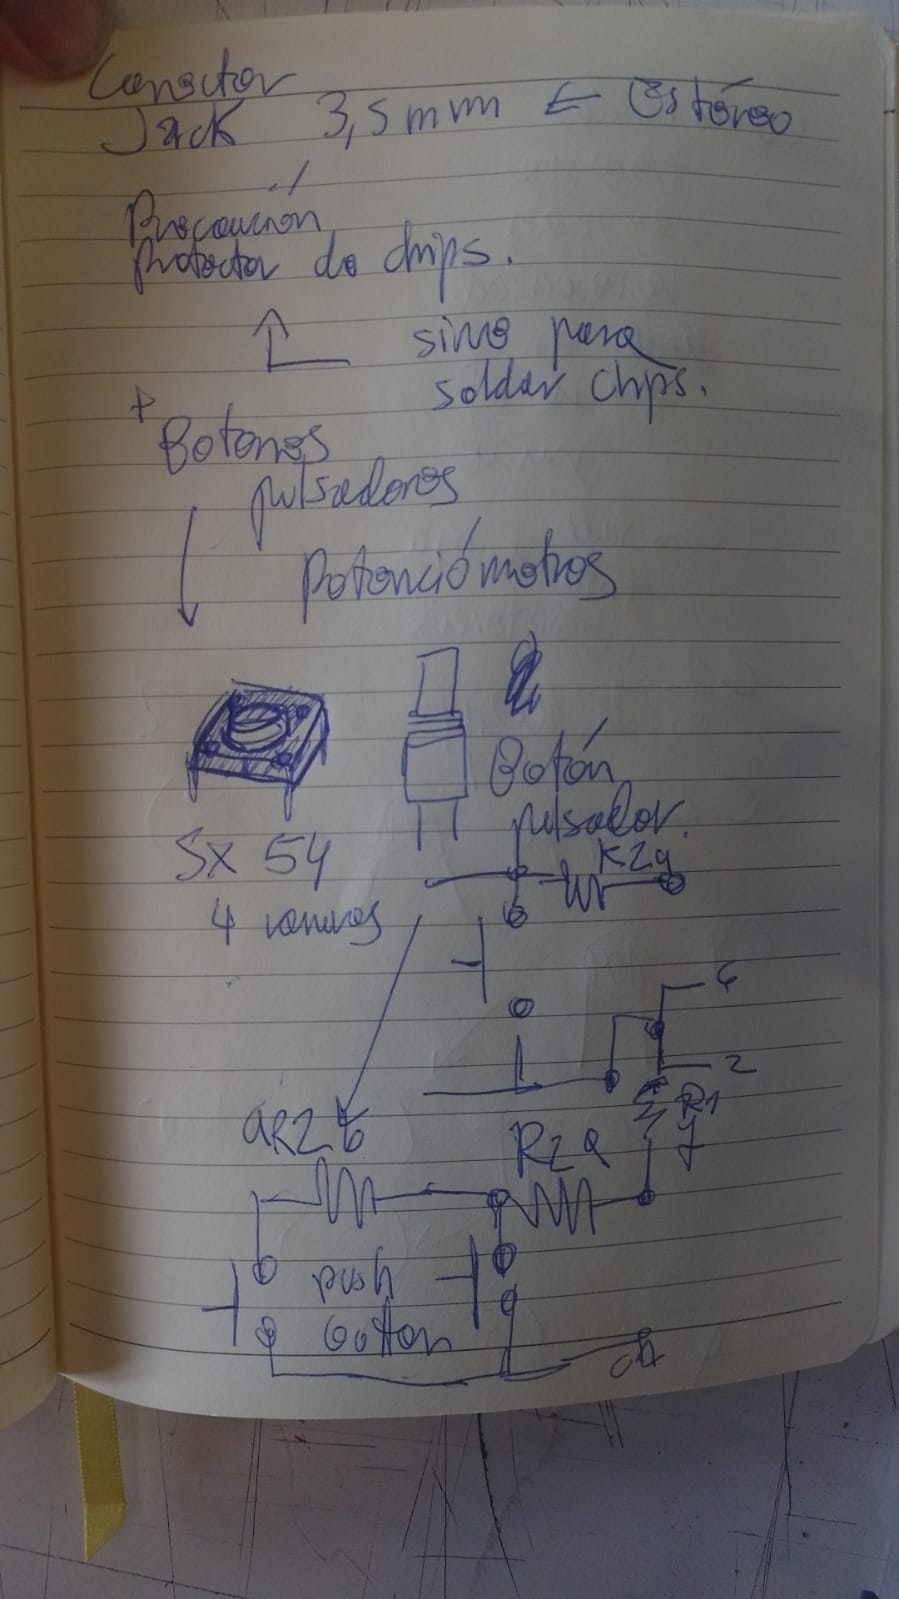 Conector
Jack 3,5 mm ← Estéreo
Precaución
Protector de chips.
sirve para
soldar chips.
+
Botones
pulsadores
Potenciómetros
Botón
pulsador.
SX 54
4 ranuras
R2a
6
2
R1
R2b
R2a
push
button